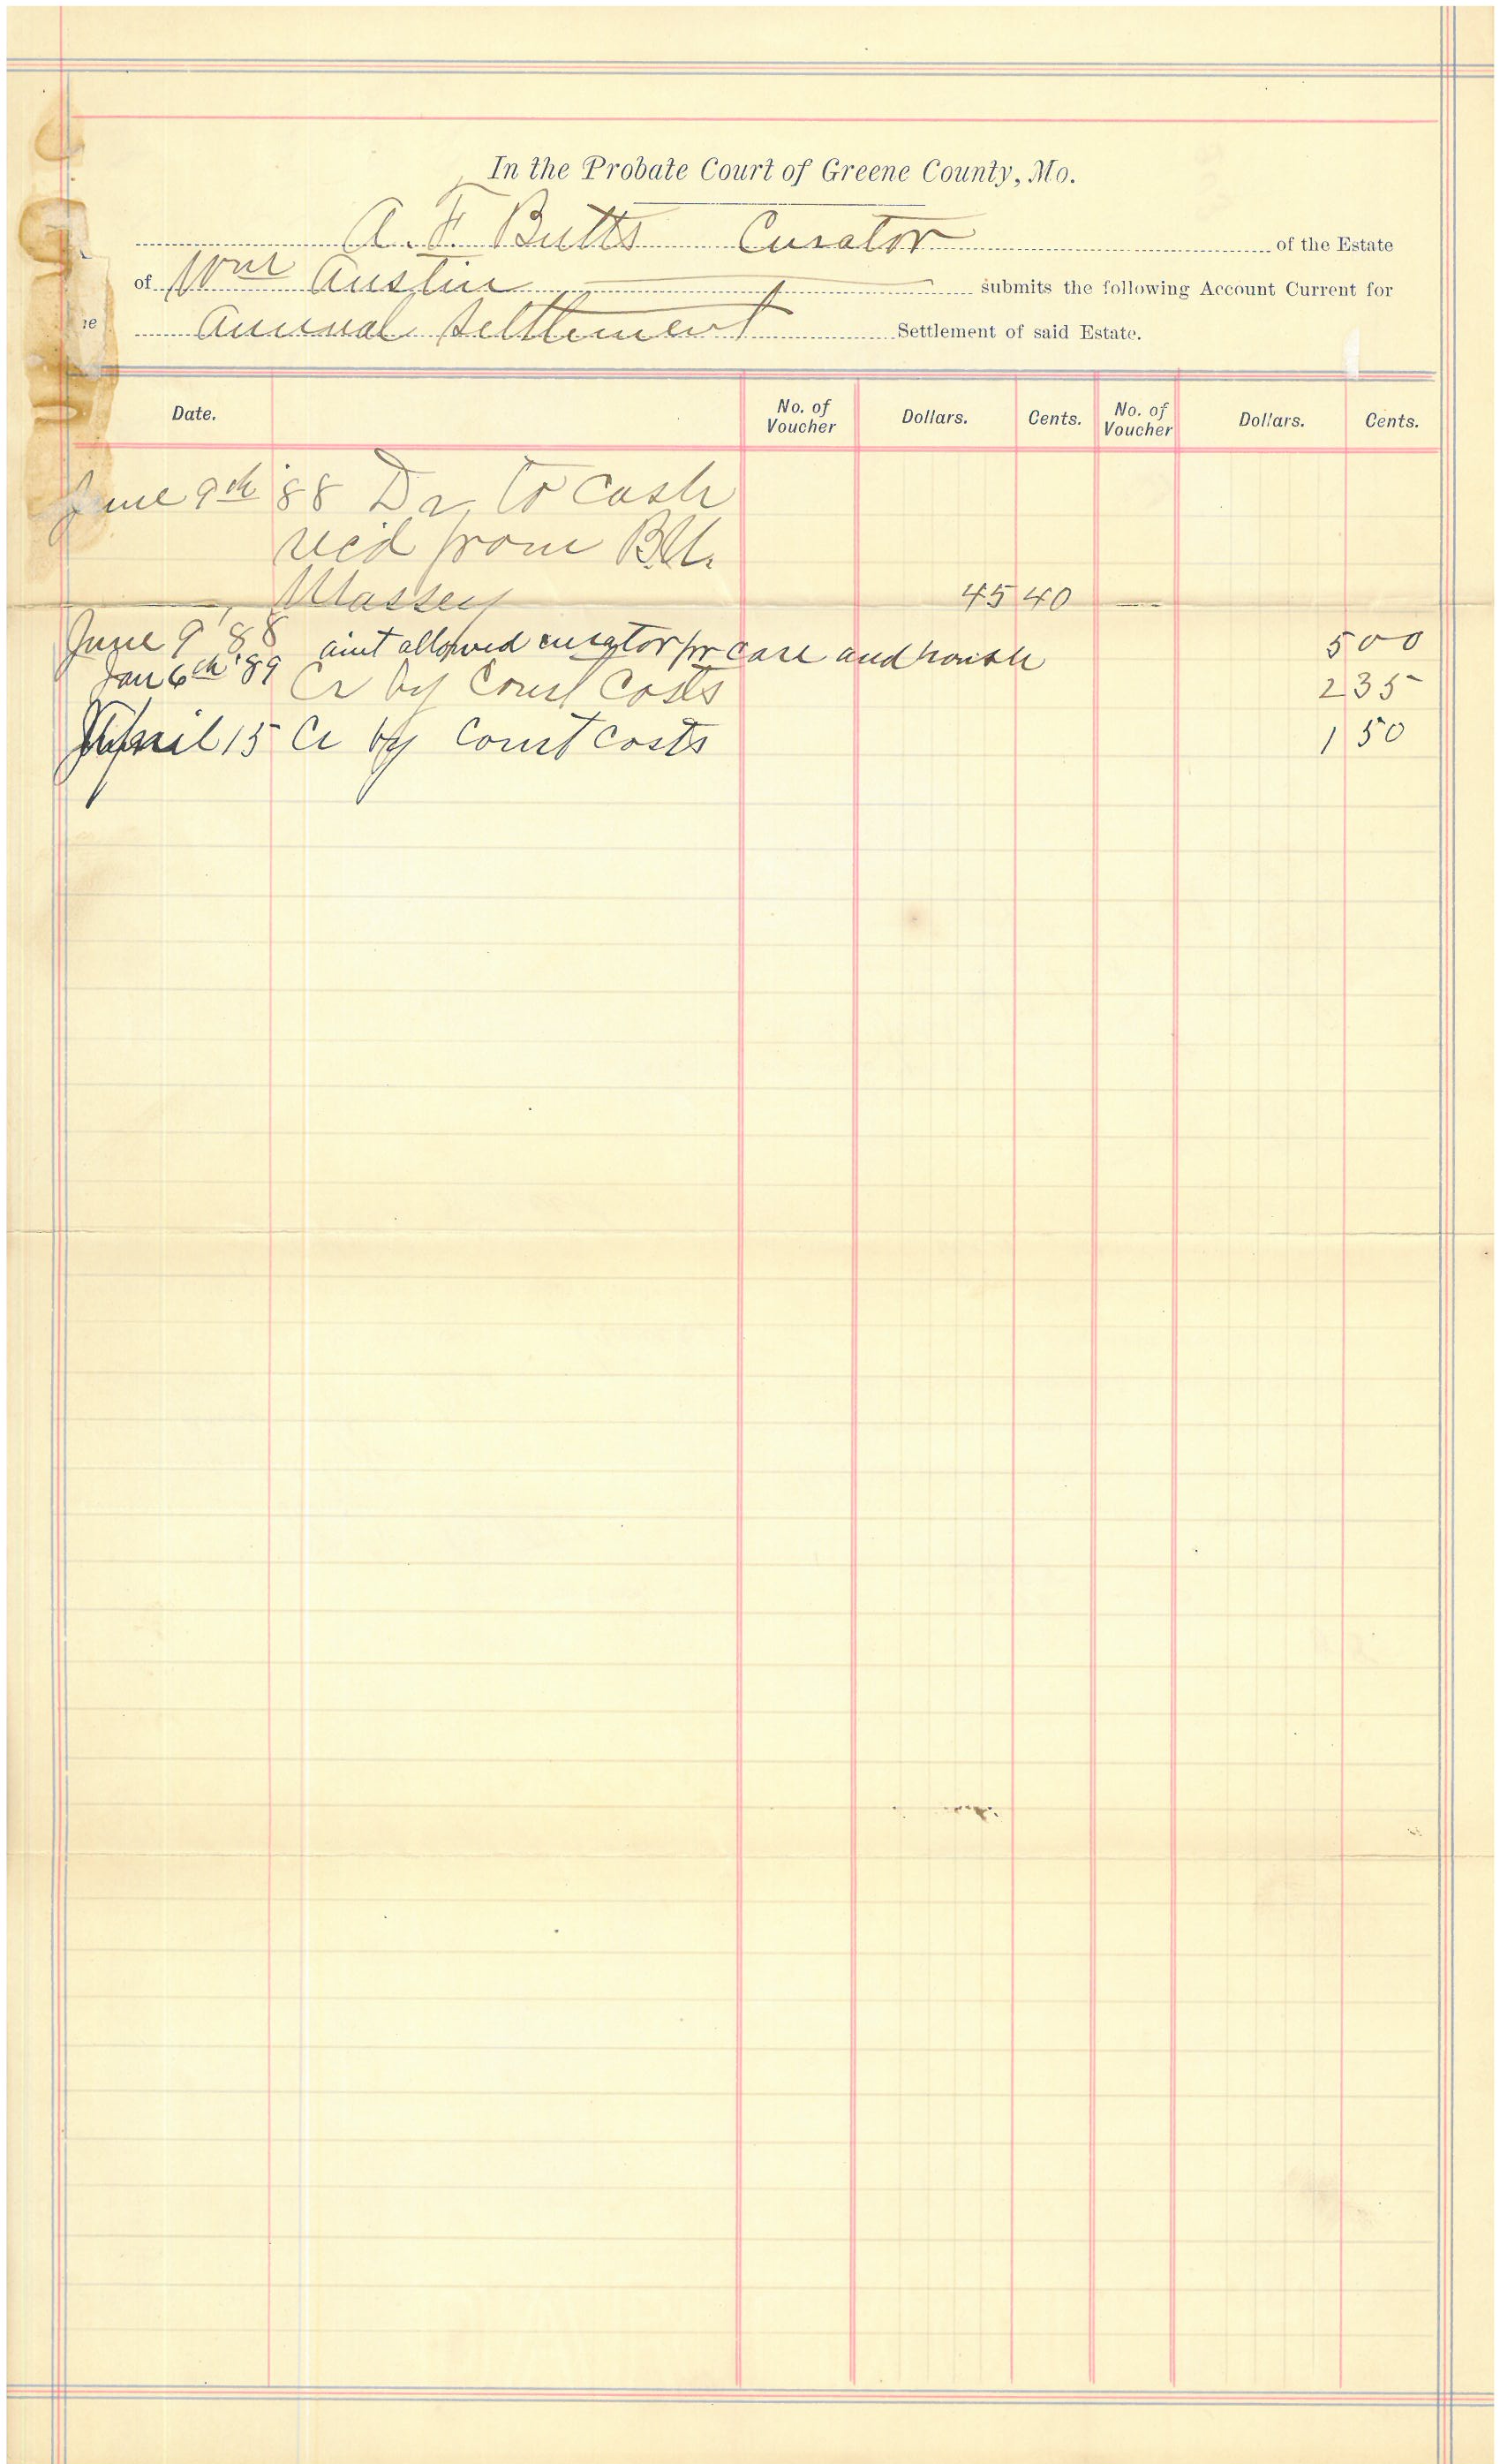 In the Probate Court of Greene County, Mo.
A. F. Butts Curator of the Estate
of Wm Austin submits the following Account Current for
Annual Settlement Settlement of said Estate.
ne
Date. No. of Voucher Dollars. Cents. No. of Voucher Dollars. Cents.
June 9th '88 Dr, to cash
recd from B.U.
Massey 45 40
June 9 '88 amt allowed curator for care and trouble 5 00
Jan 6th '89 Cr by Court Costs 2 35
April 15 Cr by Court costs 1 50